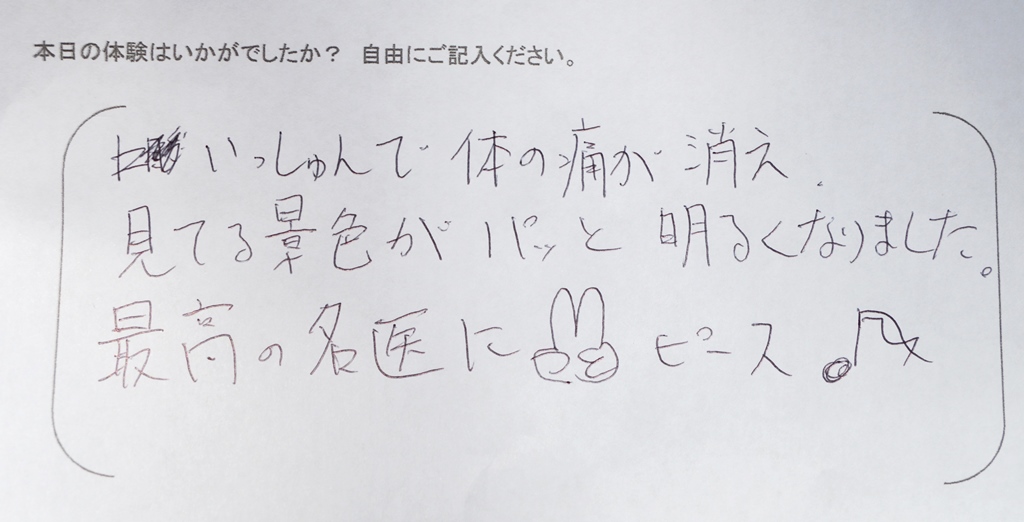 本日の体験はいかがでしたか？ 自由にご記入ください。
いっしゅんで 体の痛が 消え.
見てる景色が パッと 明るくなりました。
最高の名医に ピース